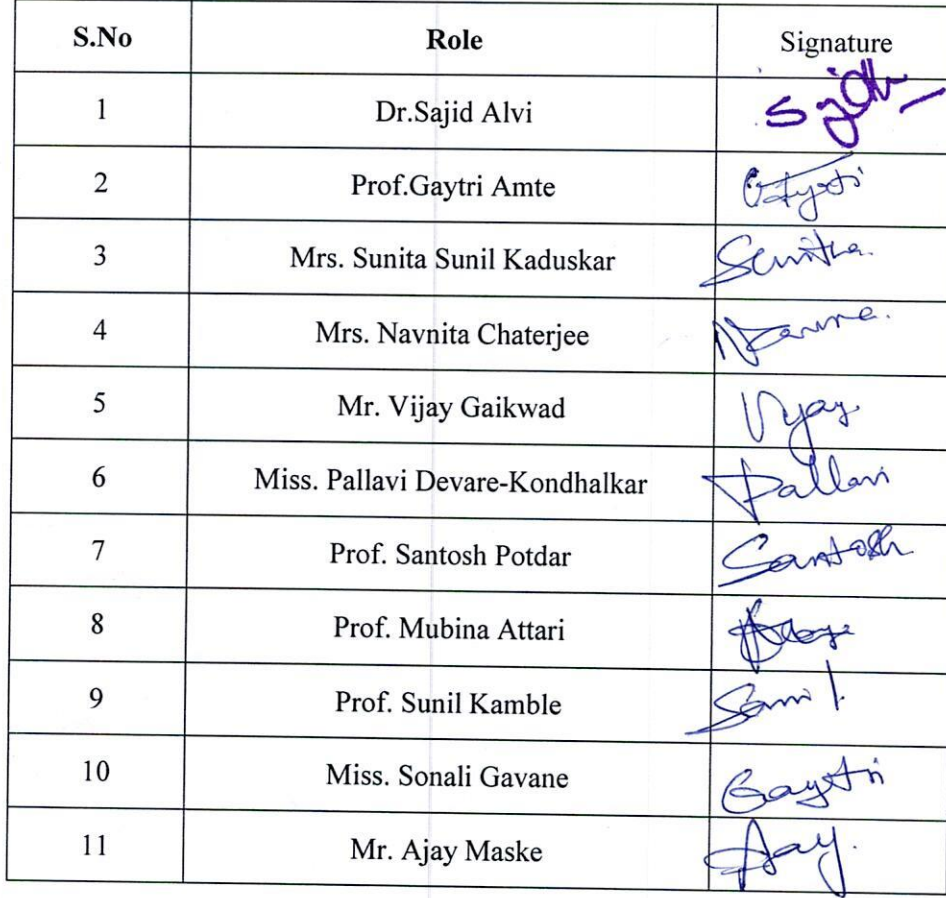 S.No Role Signature
1 Dr.Sajid Alvi
2 Prof.Gaytri Amte
3 Mrs. Sunita Sunil Kaduskar Sunitha.
4 Mrs. Navnita Chaterjee
5 Mr. Vijay Gaikwad Vijay
6 Miss. Pallavi Devare-Kondhalkar Pallavi
7 Prof. Santosh Potdar Santosh
8 Prof. Mubina Attari
9 Prof. Sunil Kamble
10 Miss. Sonali Gavane Gaytri
11 Mr. Ajay Maske